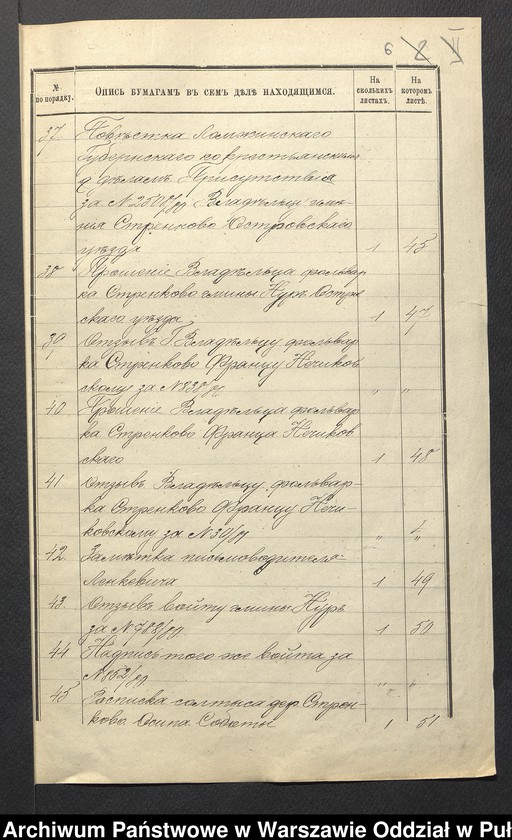 6 8
№ по порядку.
Опись бумагамъ въ семъ дѣлѣ находящимся.
На сколькихъ листахъ.
На которомъ листѣ.
37. Повѣстка Ломжинскаго
Губернскаго по крестьянскимъ
дѣламъ Присутствія
за № Владѣльцу имѣ-
нія Стренково Островскаго
уѣзда 1 45
38 Прошеніе Владѣльца фольвар
ка Стренково гмины Нуръ Остро
скаго уѣзда 1 47
39 Отзывъ Г Владѣльцу фольвар
ка Стренково Францу Нечиков
скому за № „ „
40 Прошеніе Владѣльца фольвар
ка Стренково Франца Нечиков
скаго 1 48
41 Отзывъ Владѣльцу фольвар-
ка Стренково Францу Нечи-
ковскому за № 30/ „ „
42. Замѣтка письмоводителя
Ленкевича 1 49
43. Отзывъ войту гмины Нуръ
за № 788/ 1 50
44 Надпись того же войта за
№ 852/ „ „
45 Росписка солтыса дер Стрен-
ково Осипа Соботы 1 51
Archiwum Państwowe w Warszawie Oddział w Puł